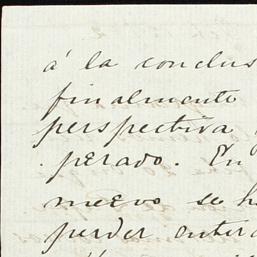 á la conclus
finalmente
perspectiva
perado. En
nuevo se h
perder entera